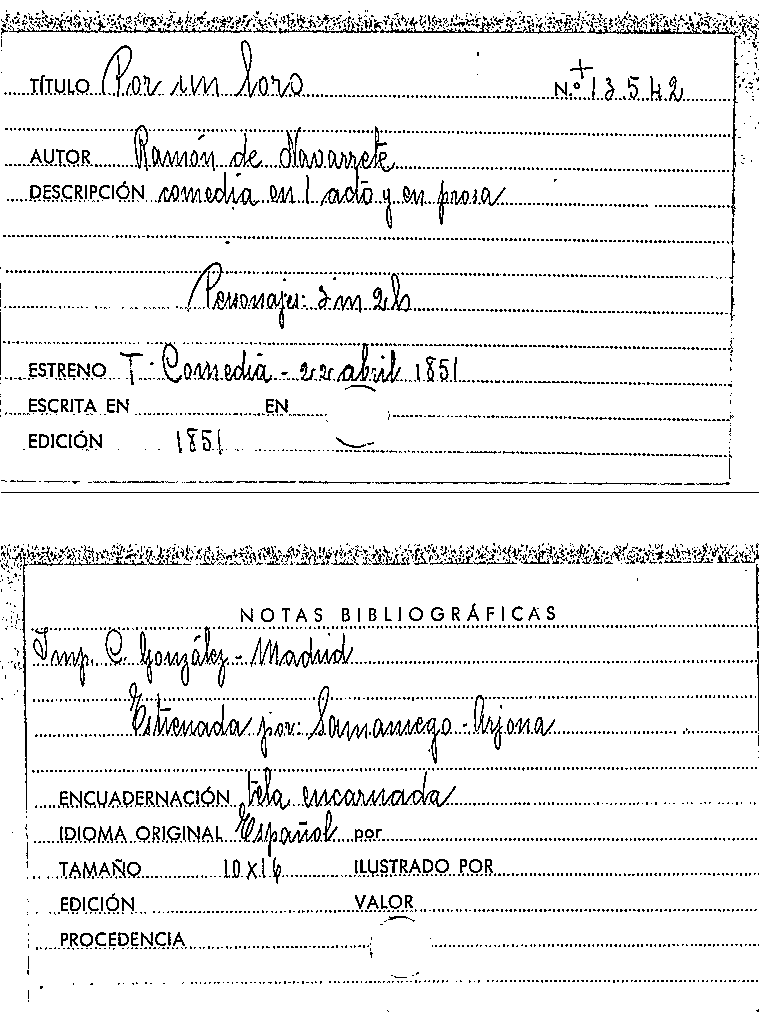 TÍTULO Por un loro N.º + 13.542
AUTOR Ramón de Navarrete
DESCRIPCIÓN comedia en 1 acto y en prosa
Personajes: 3m 2h
ESTRENO T. Comedia - 22 abril 1851
ESCRITA EN EN
EDICIÓN 1851
NOTAS BIBLIOGRÁFICAS
Imp. C. González - Madrid
Estrenada por: Samaniego - Arjona
ENCUADERNACIÓN tela encarnada
IDIOMA ORIGINAL Español por
TAMAÑO 10 x 16 ILUSTRADO POR
EDICIÓN VALOR
PROCEDENCIA